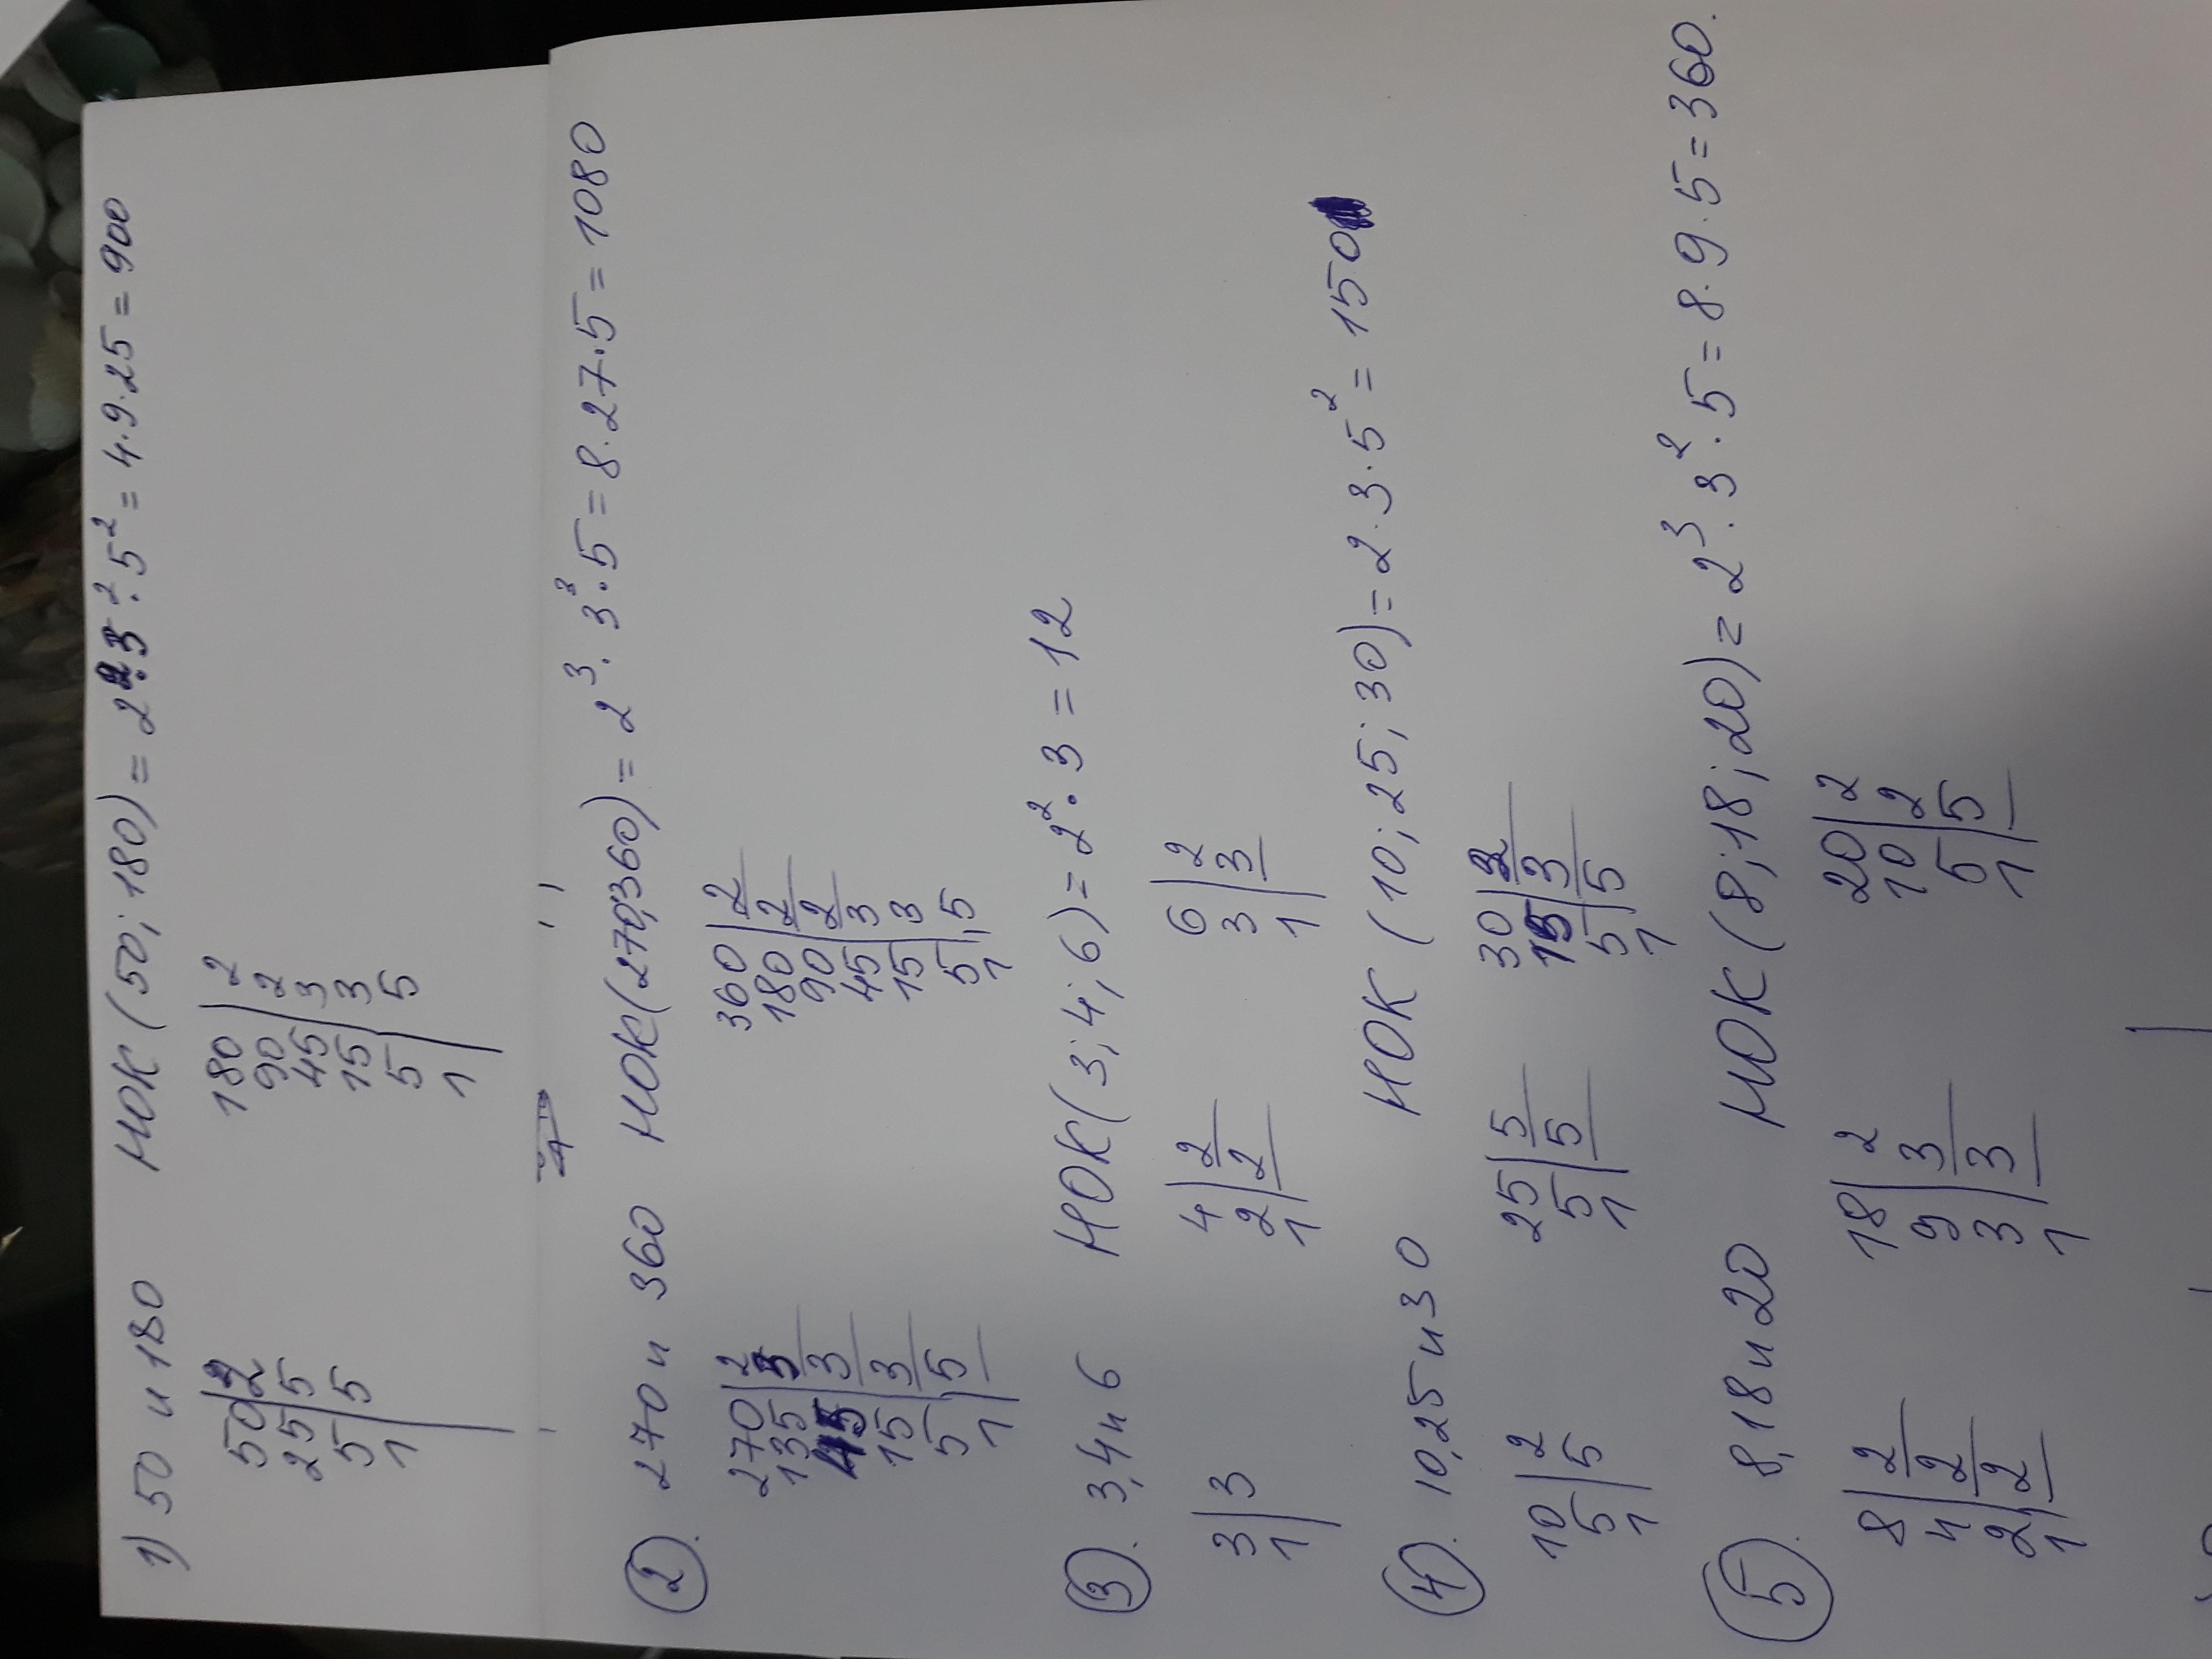 1) 50 и 180 НОК (50; 180) = 2². 3². 5² = 4·9·25 = 900
50 | 2 180 | 2
25 | 5 90 | 2
5 | 5 45 | 3
1 | 15 | 3
5 | 5
1 |
2. 270 и 360 НОК(270;360) = 2³· 3³· 5 = 8·27·5 = 1080
270 | 2 360 | 2
135 | 3 180 | 2
45 | 3 90 | 2
15 | 3 45 | 3
5 | 5 15 | 3
1 | 5 | 5
1
3. 3,4 и 6 НОК(3; 4; 6) = 2²· 3 = 12
3 | 3 4 | 2 6 | 2
1 | 2 | 2 3 | 3
1 | 1 |
4. 10,25 и 30 НОК (10; 25; 30) = 2·3·5² = 150
10 | 2 25 | 5 30 | 2
5 | 5 5 | 5 15 | 3
1 | 1 | 5 | 5
1
5. 8,18 и 20 НОК (8; 18; 20) = 2³· 3²· 5 = 8·9·5 = 360.
8 | 2 18 | 2 20 | 2
4 | 2 9 | 3 10 | 2
2 | 2 3 | 3 5 | 5
1 1 1